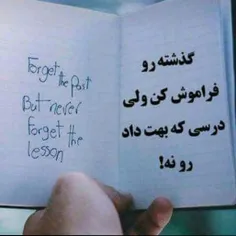 Forget
the Past
But never
Forget the
lesson
گذشته رو
فراموش کن ولی
درسی که بهت داد
رو نه!